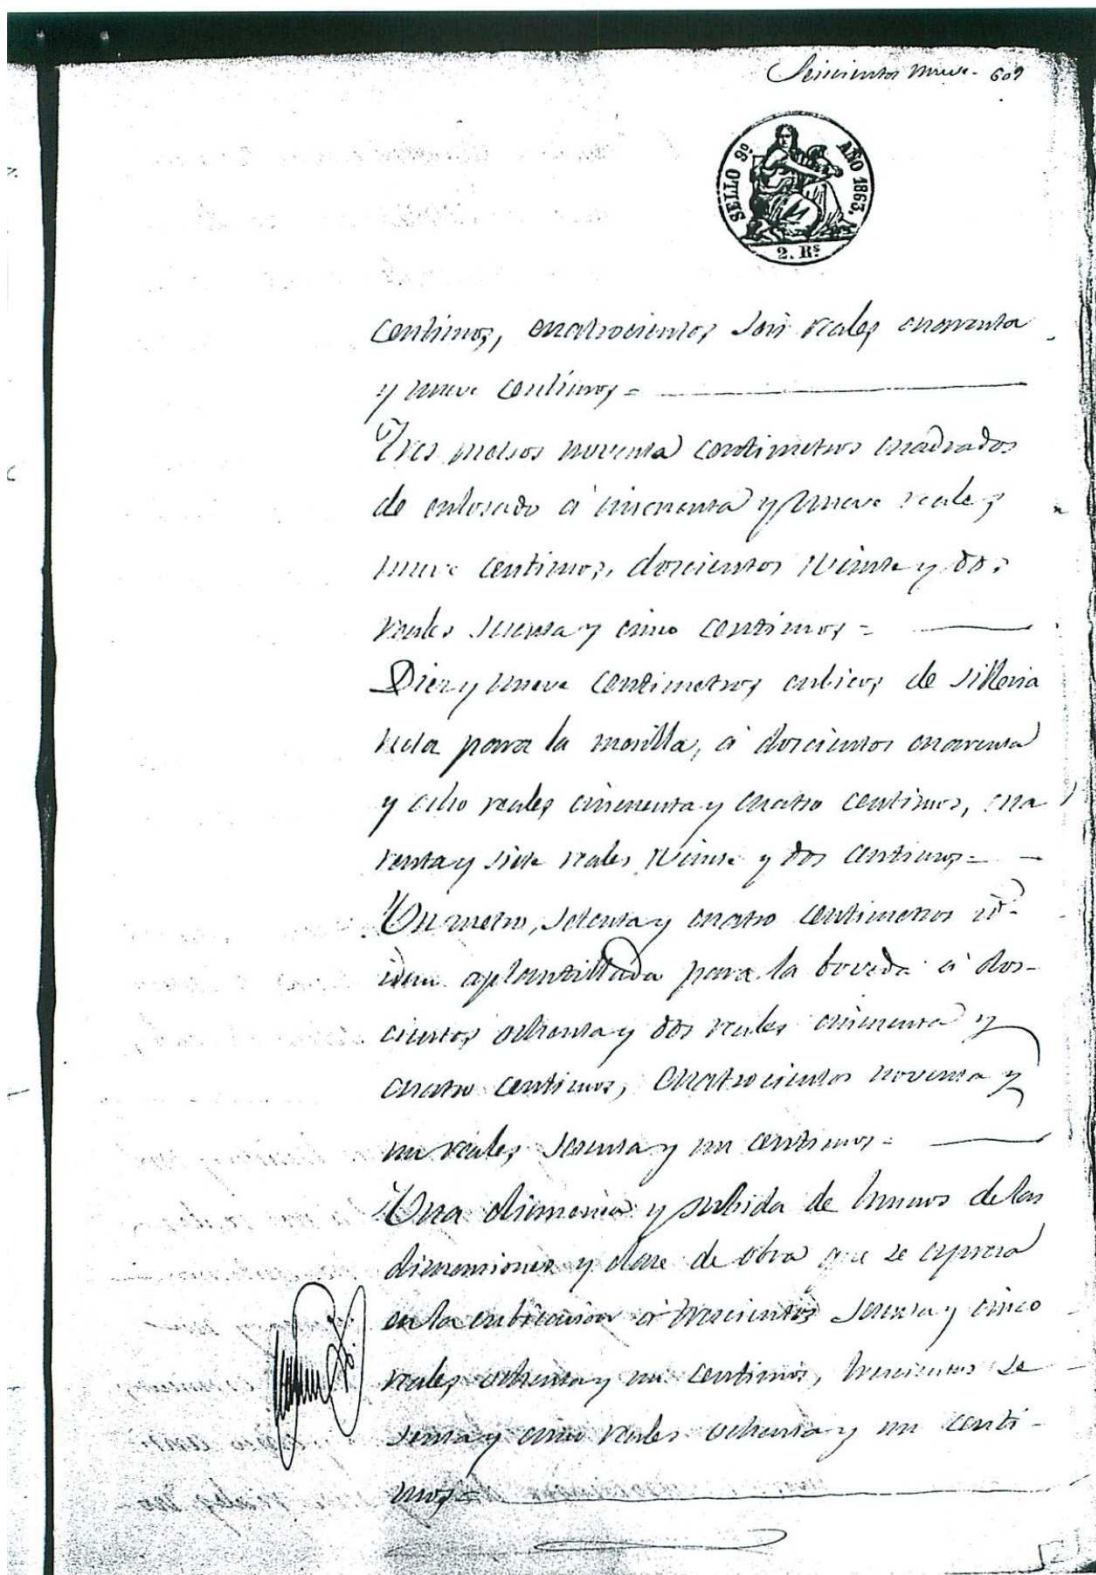 Seiscientos nueve - 609
SELLO 9º AÑO 1863.
2. Rs
centimos, cuatrocientos seis reales cuarenta
y nueve centimos =
Tres metros noventa centimetros cuadrados
de enlosado á cincuenta y nueve reales
nueve centimos, doscientos veinte y dos
reales sesenta y cinco centimos =
Diez y nueve centimetros cubicos de silleria
recta para la mosilla, á doscientos cuarenta
y ocho reales cincuenta y cuatro centimos, cua
renta y siete reales veinte y dos centimos =
Un metro, setenta y cuatro centimetros id-
idem aplantillada para la boveda á dos-
cientos ochenta y dos reales cincuenta y
cuatro centimos, cuatrocientos noventa y
un reales, sesenta y un centimos =
Una chimenea y subida de humos de las
dimensiones y clase de obra que se espresa
en la cubicacion á trescientos sesenta y cinco
reales ochenta y un centimos, trescientos se
senta y cinco reales ochenta y un centi-
mos =